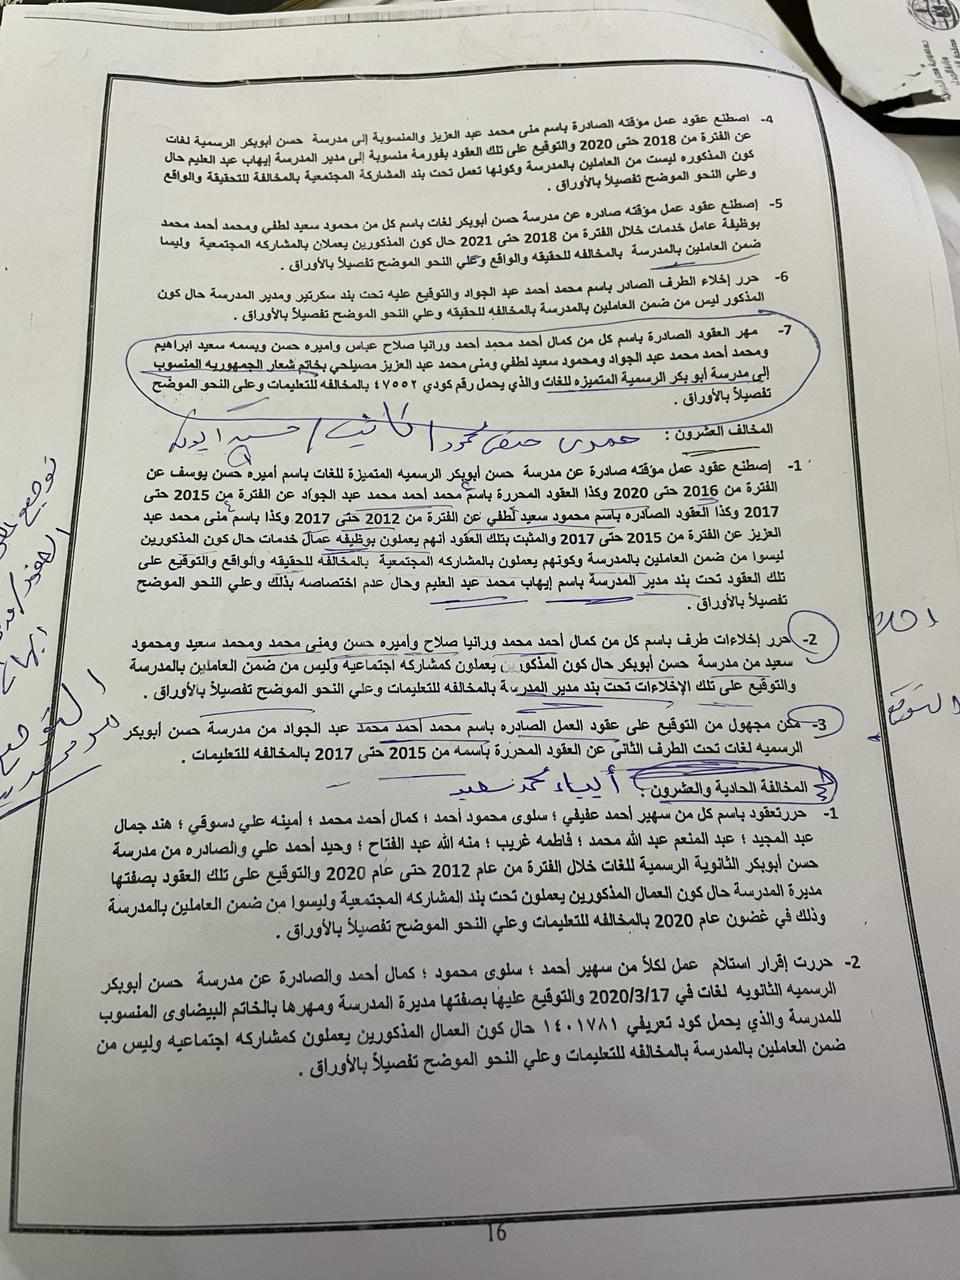 4- اصطنع عقود عمل مؤقته الصادرة باسم منى محمد عبد العزيز والمنسوبة إلى مدرسة حسن أبوبكر الرسمية لغات
عن الفترة من 2018 حتى 2020 والتوقيع على تلك العقود بفورمة منسوبة إلى مدير المدرسة إيهاب عبد العليم حال
كون المذكوره ليست من العاملين بالمدرسة وكونها تعمل تحت بند المشاركة المجتمعية بالمخالفة للتحقيقة والواقع
وعلي النحو الموضح تفصيلاً بالأوراق .
5- إصطنع عقود عمل مؤقته صادره عن مدرسة حسن أبوبكر لغات باسم كل من محمود سعيد لطفي ومحمد أحمد محمد
بوظيفة عامل خدمات خلال الفترة من 2018 حتى 2021 حال كون المذكورين يعملان بالمشاركه المجتمعية وليسا
ضمن العاملين بالمدرسة بالمخالفه للحقيقه والواقع وعلي النحو الموضح تفصيلاً بالأوراق .
6- حرر إخلاء الطرف الصادر باسم محمد أحمد عبد الجواد والتوقيع عليه تحت بند سكرتير ومدير المدرسة حال كون
المذكور ليس من ضمن العاملين بالمدرسة بالمخالفه للحقيقه وعلي النحو الموضح تفصيلاً بالأوراق .
7- مهر العقود الصادرة باسم كل من كمال أحمد محمد أحمد ورانيا صلاح عباس واميره حسن وبسمه سعيد ابراهيم
ومحمد أحمد محمد عبد الجواد ومحمود سعيد لطفي ومنى محمد عبد العزيز مصيلحي بخاتم شعار الجمهوريه المنسوب
إلى مدرسة أبو بكر الرسمية المتميزه للغات والذي يحمل رقم كودي ٤٧٥٥٢ بالمخالفه للتعليمات وعلى النحو الموضح
تفصيلاً بالأوراق .
المخالف العشرون : حمدى حنفى محمود /
1- إصطنع عقود عمل مؤقته صادرة عن مدرسة حسن أبوبكر الرسميه المتميزة للغات باسم أميره حسن يوسف عن
الفترة من 2016 حتى 2020 وكذا العقود المحررة باسم محمد أحمد محمد عبد الجواد عن الفترة من 2015 حتى
2017 وكذا العقود الصادره باسم محمود سعيد لطفي عن الفترة من 2012 حتى 2017 وكذا باسم منى محمد عبد
العزيز عن الفترة من 2015 حتى 2017 والمثبت بتلك العقود أنهم يعملون بوظيفه عمال خدمات حال كون المذكورين
ليسوا من ضمن العاملين بالمدرسة وكونهم يعملون بالمشاركه المجتمعية بالمخالفة للحقيقه والواقع والتوقيع على
تلك العقود تحت بند مدير المدرسة باسم إيهاب محمد عبد العليم وحال عدم اختصاصه بذلك وعلي النحو الموضح
تفصيلاً بالأوراق .
2- حرر إخلاءات طرف باسم كل من كمال أحمد محمد ورانيا صلاح وأميره حسن ومنى محمد ومحمد سعيد ومحمود
سعيد من مدرسة حسن أبوبكر حال كون المذكورين يعملون كمشاركه اجتماعية وليس من ضمن العاملين بالمدرسة
والتوقيع على تلك الإخلاءات تحت بند مدير المدرسة بالمخالفه للتعليمات وعلي النحو الموضح تفصيلاً بالأوراق .
3- مكن مجهول من التوقيع على عقود العمل الصادره باسم محمد أحمد محمد عبد الجواد من مدرسة حسن أبوبكر
الرسميه لغات تحت الطرف الثانى عن العقود المحررة باسمه من 2015 حتى 2017 بالمخالفه للتعليمات .
المخالفة الحادية والعشرون : محمد سعيد
1- حررتعقود باسم كل من سهير أحمد عفيفي ؛ سلوى محمود أحمد ؛ كمال أحمد محمد ؛ أمينه علي دسوقي ؛ هند جمال
عبد المجيد ؛ عبد المنعم عبد الله محمد ؛ فاطمه غريب ؛ منه الله عبد الفتاح ؛ وحيد أحمد علي والصادره من مدرسة
حسن أبوبكر الثانوية الرسمية للغات خلال الفترة من عام 2012 حتى عام 2020 والتوقيع على تلك العقود بصفتها
مديرة المدرسة حال كون العمال المذكورين يعملون تحت بند المشاركه المجتمعية وليسوا من ضمن العاملين بالمدرسة
وذلك في غضون عام 2020 بالمخالفه للتعليمات وعلي النحو الموضح تفصيلاً بالأوراق .
2- حررت إقرار استلام عمل لكلاً من سهير أحمد ؛ سلوى محمود ؛ كمال أحمد والصادرة عن مدرسة حسن أبوبكر
الرسميه الثانويه لغات في 2020/3/17 والتوقيع عليها بصفتها مديرة المدرسة ومهرها بالخاتم البيضاوى المنسوب
للمدرسة والذي يحمل كود تعريفي ١٤٠١٧٨١ حال كون العمال المذكورين يعملون كمشاركه اجتماعيه وليس من
ضمن العاملين بالمدرسة بالمخالفه للتعليمات وعلي النحو الموضح تفصيلاً بالأوراق .
16